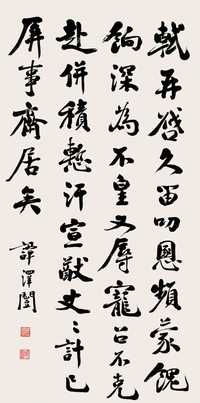 軾再啓久留叨恩頻蒙餽
餉深為不皇又辱寵召不克
赴併積慙汗宣猷丈丈計已
屏事齋居矣
譚澤闓